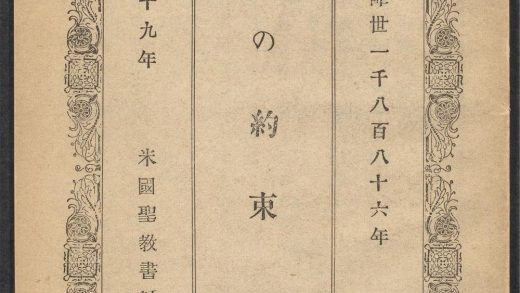 降世一千八百八十六年
の約束
十九年
米國聖教書